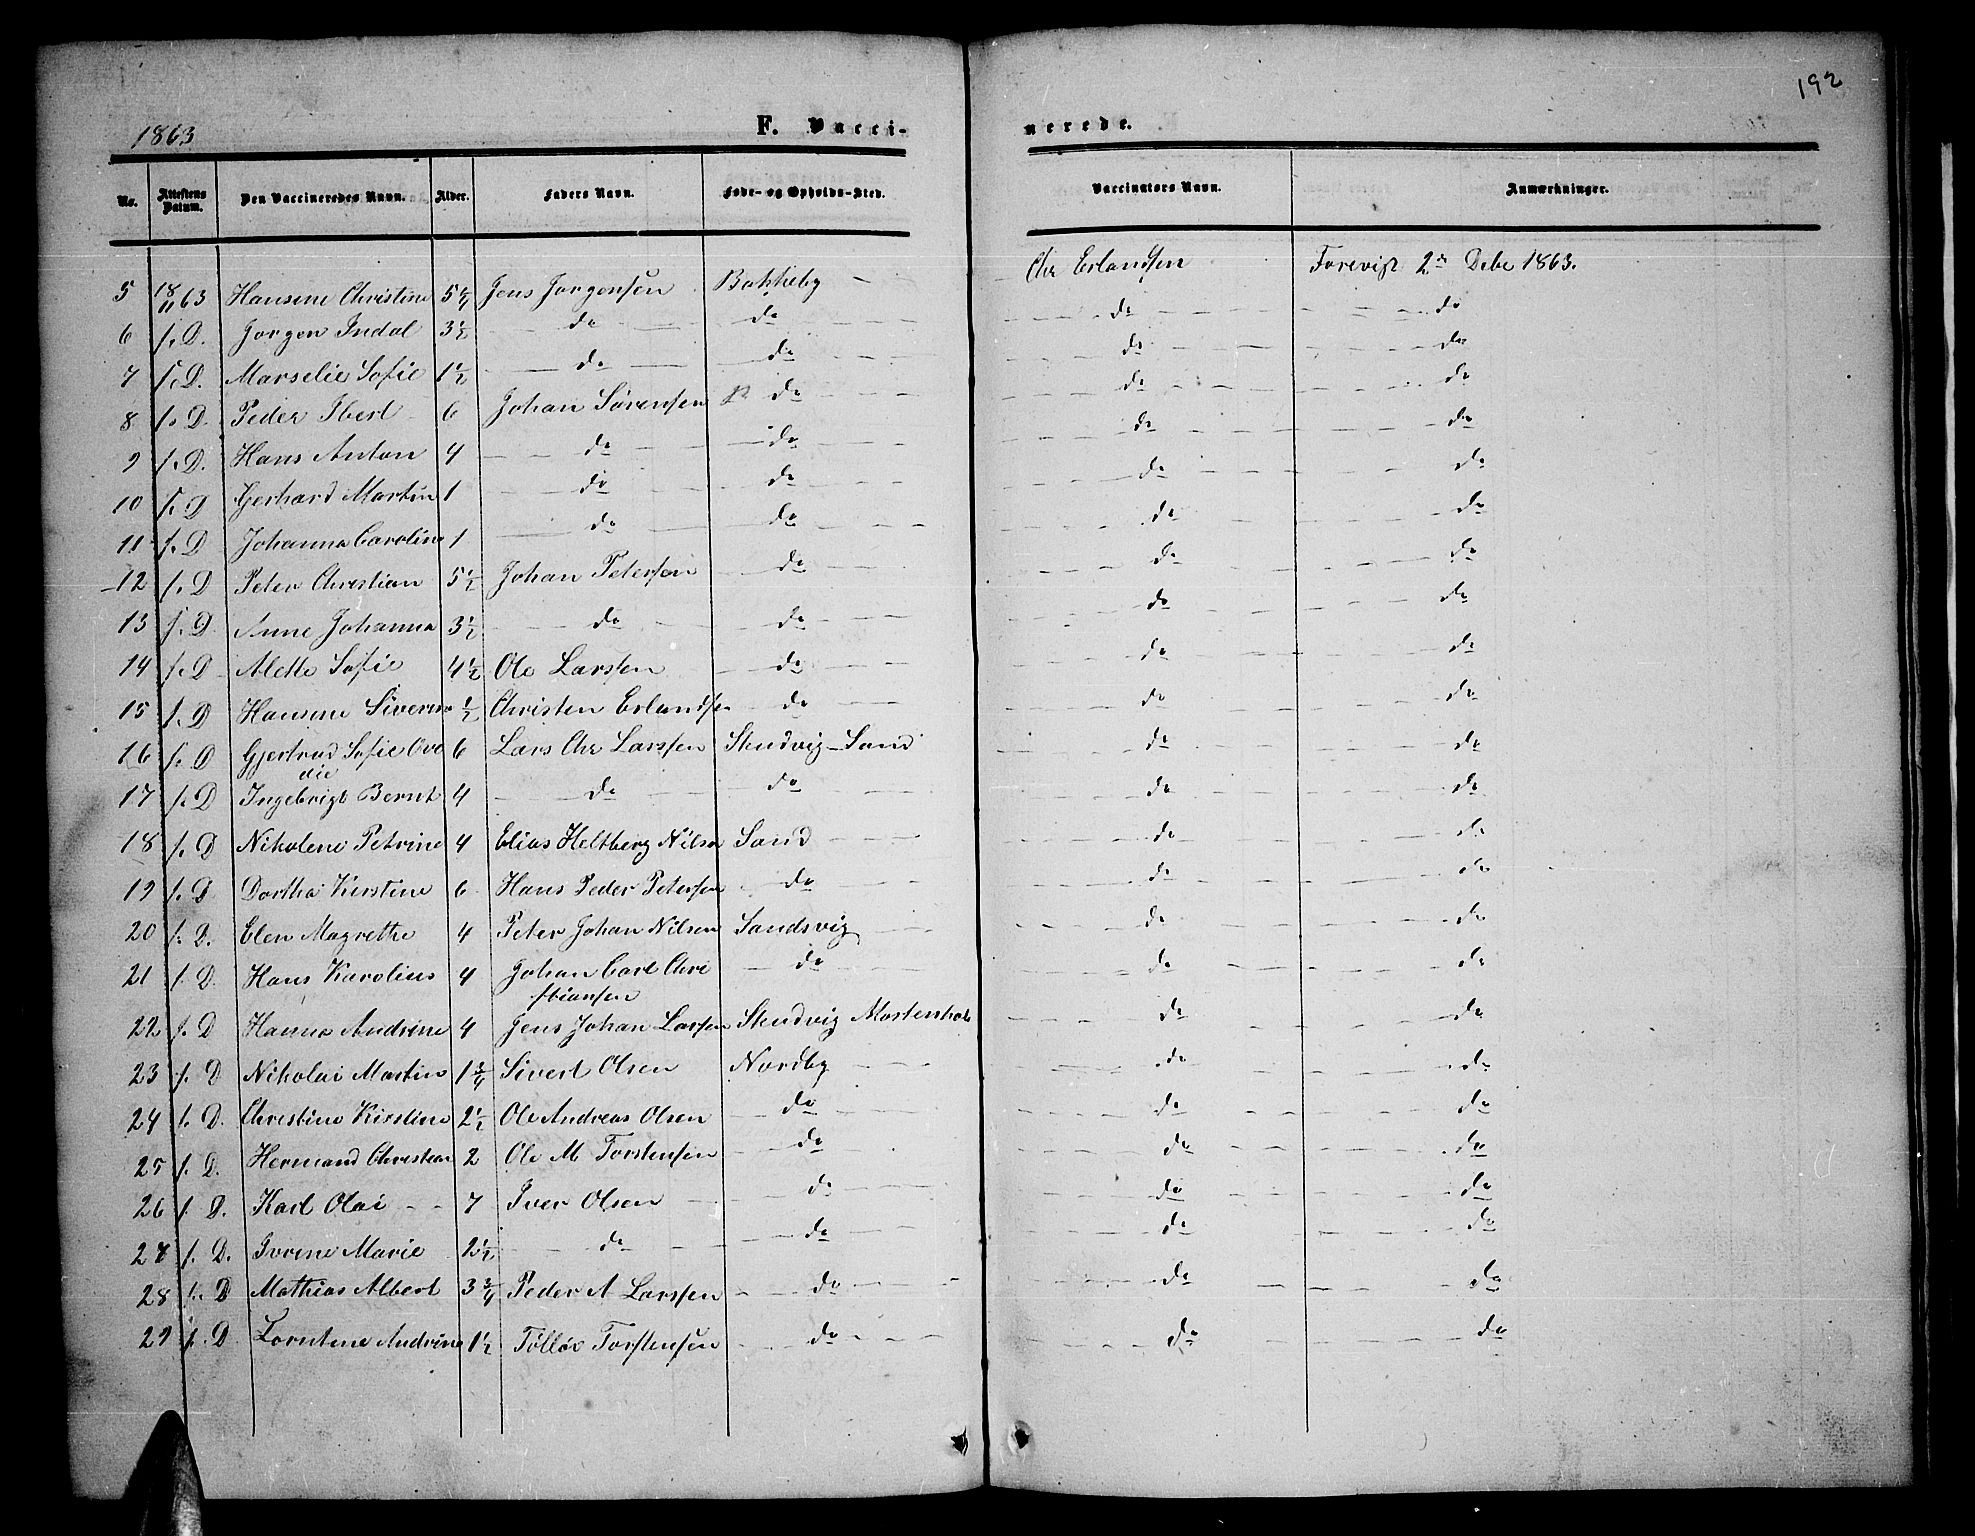 192
1863 F. Vacci- nerede.
No. Attestens Datum. Den Vaccineredes Navn. Alder. Faders Navn. Føde- og Opholds-Sted. Vaccinators Navn. Anmærkninger.
5 18/11 63 Hansine Christine 5 Jens Jørgensen Bakkeby Chr Erlandsen Forevist 2 Debr 1863.
6 s. D. Jørgen Indal 3½ do do do do
7 s. D. Marselie Sofie 1½ do do do do
8 s. D. Peder Ibert 6 Johan Sørensen do do do
9 s. D. Hans Anton 4 do do do do
10 s. D Gerhard Martin 1 do do do do
11 s. D Johanna Caroline 1 do do do do
12 s. D Peter Christian 5½ Johan Petersen do do do
13 s. D Anne Johanna 3½ do do do do
14 s. D Alette Sofie 4½ Ole Larssen do do do
15 s. D Hansine Siverine ½ Christen Erlandsen do do do
16 s. D Gjertrud Sofie Ove 6 Lars Chr Larssen Skudvig-Sand do do
die
17 s. D Ingebrigt Bernt 4 do do do do
18 s. D Nikolene Petrine 4 Elias Heltberg Nilsen Sand do do
19 s. D Dortha Kirstine 6 Hans Peder Petersen do do do
20 s. D. Elen Magrethe 4 Peter Johan Nilsen Sandsvig do do
21 s. D. Hans Karolius 4 Johan Carl Chri do do do
stiansen
22 s. D Hanna Andrine 4 Jens Johan Larsen Skudvig Mostenhol do do
23 s. D Nikolai Martin 1¾ Sivert Olsen Nordby do do
24 s. D. Christine Kirstine 2½ Ole Andreas Olsen do do do
25 s. D. Hermand Christian 2 Ole M Torstensen do do do
26 s. D. Karl Olai 7 Iver Olsen do do do
28 s. D. Iverine Marie 2½ do do do do
28 s. D Mathias Albert 3¾ Peder A Larssen do do do
29 s. D Lorntine Andrine 1½ Tølløv Torstensen do do do